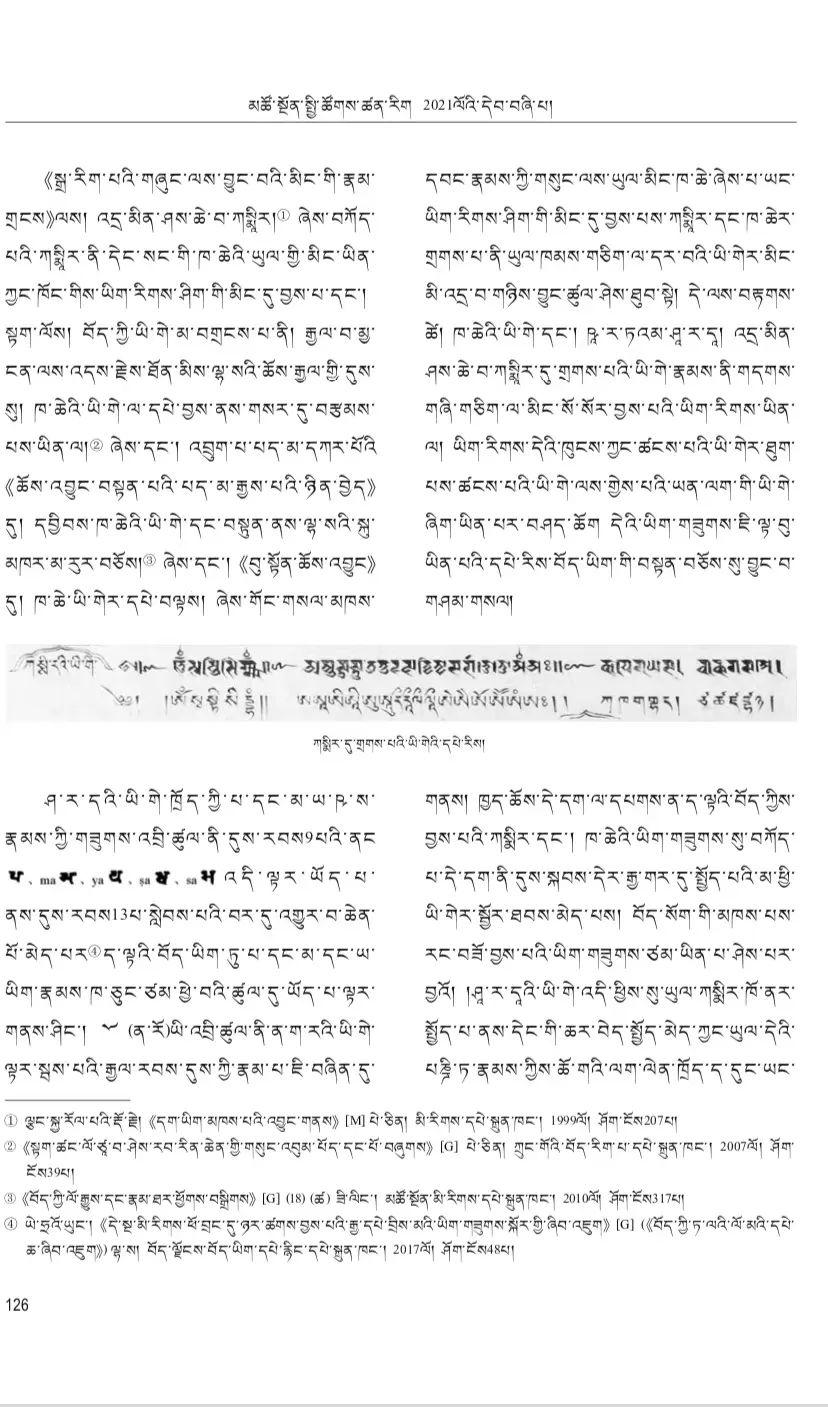 མཚོ་སྔོན་སྤྱི་ཚོགས་ཚན་རིག 2021ལོའི་དེབ་བཞི་པ།
《སྒྲ་རིག་པའི་གཞུང་ལས་བྱུང་བའི་མིང་གི་རྣམ་
གྲངས》ལས། འདྲ་མིན་ཤས་ཆེ་བ་ཀསྨཱིར།① ཞེས་བཀོད་
པའི་ཀསྨཱིར་ནི་དེང་སང་གི་ཁ་ཆེའི་ཡུལ་གྱི་མིང་ཡིན་
ཀྱང་ཁོང་གིས་ཡིག་རིགས་ཤིག་གི་མིང་དུ་བྱས་པ་དང་།
སྟག་ལོས། བོད་ཀྱི་ཡི་གེ་མ་བགྲངས་པ་ནི། རྒྱལ་བ་མྱ་
ངན་ལས་འདས་རྗེས་ཐོན་མིས་ལྷ་སའི་ཆོས་རྒྱལ་གྱི་དུས་
སུ། ཁ་ཆེའི་ཡི་གེ་ལ་དཔེ་བྱས་ནས་གསར་དུ་བརྩམས་
པས་ཡིན་ལ།② ཞེས་དང་། འབྲུག་པ་པད་མ་དཀར་པོའི་
《ཆོས་འབྱུང་བསྟན་པའི་པད་མ་རྒྱས་པའི་ཉིན་བྱེད》
དུ། དབྱིབས་ཁ་ཆེའི་ཡི་གེ་དང་བསྟུན་ནས་ལྷ་སའི་སྐུ་
མཁར་མ་རུར་བཅོས།③ ཞེས་དང་། 《བུ་སྟོན་ཆོས་འབྱུང》
དུ། ཁ་ཆེ་ཡི་གེར་དཔེ་བལྟས། ཞེས་གོང་གསལ་མཁས་
དབང་རྣམས་ཀྱི་གསུང་ལས་ཡུལ་མིང་ཁ་ཆེ་ཞེས་པ་ཡང་
ཡིག་རིགས་ཤིག་གི་མིང་དུ་བྱས་པས་ཀསྨཱིར་དང་ཁ་ཆེར་
གྲགས་པ་ནི་ཡུལ་ཁམས་གཅིག་ལ་དར་བའི་ཡི་གེར་མིང་
མི་འདྲ་བ་གཉིས་བྱུང་ཚུལ་ཤེས་ཐུབ་སྟེ། དེ་ལས་བརྟགས་
ཚེ། ཁ་ཆེའི་ཡི་གེ་དང་། ཥཱ་ར་ཏའམ་ཤཱ་ར་དཱ། འདྲ་མིན་
ཤས་ཆེ་བ་ཀསྨཱིར་དུ་གྲགས་པའི་ཡི་གེ་རྣམས་ནི་གདགས་
གཞི་གཅིག་ལ་མིང་སོ་སོར་བྱས་པའི་ཡིག་རིགས་ཡིན་
ལ། ཡིག་རིགས་དེའི་ཁུངས་ཀྱང་ཚངས་པའི་ཡི་གེར་ཐུག་
པས་ཚངས་པའི་ཡི་གེ་ལས་གྱེས་པའི་ཡན་ལག་གི་ཡི་གེ་
ཞིག་ཡིན་པར་བཤད་ཆོག དེའི་ཡིག་གཟུགས་ཇི་ལྟ་བུ་
ཡིན་པའི་དཔེ་རིས་བོད་ཡིག་གི་བསྟན་བཅོས་སུ་བྱུང་བ་
གཤམ་གསལ།
ཀསྨིར་དུ་གྲགས་པའི་ཡི་གེའི་དཔེ་རིས།
ཤ་ར་དའི་ཡི་གེ་ཁྲོད་ཀྱི་པ་དང་མ་ཡ་ཥ་ས་
རྣམས་ཀྱི་གཟུགས་འབྲི་ཚུལ་ནི་དུས་རབས9པའི་ནང
、ma 、ya 、ṣa 、sa འདི་ལྟར་ཡོད་པ་
ནས་དུས་རབས13པ་སླེབས་པའི་བར་དུ་འགྱུར་བ་ཆེན་
པོ་མེད་པར④ད་ལྟའི་བོད་ཡིག་ཏུ་པ་དང་མ་དང་ཡ་
ཡིག་རྣམས་ཁ་ཅུང་ཙམ་ཕྱེ་བའི་ཚུལ་དུ་ཡོད་པ་ལྟར་
གནས་ཤིང་། (ན་རོ)ཡི་འབྲི་ཚུལ་ནི་ན་ག་རའི་ཡི་གེ་
ལྟར་སྤུས་པའི་རྒྱལ་རབས་དུས་ཀྱི་རྣམ་པ་ཇི་བཞིན་དུ་
གནས། ཁྱད་ཆོས་དེ་དག་ལ་དཔགས་ན་ད་ལྟའི་བོད་ཀྱིས་
བྱས་པའི་ཀསྨིར་དང་། ཁ་ཆེའི་ཡིག་གཟུགས་སུ་བཀོད་
པ་དེ་དག་ནི་དུས་སྐབས་དེར་རྒྱ་གར་དུ་སྤྱོད་པའི་མ་ཕྱི་
ཡི་གེར་སྦྱོར་ཐབས་མེད་པས། བོད་སོག་གི་མཁས་པས་
རང་བཟོ་བྱས་པའི་ཡིག་གཟུགས་ཙམ་ཡིན་པ་ཤེས་པར་
བྱའོ། །ཤཱ་ར་དཱའི་ཡི་གེ་འདི་ཕྱིས་སུ་ཡུལ་ཀསྨིར་ཁོ་ནར་
སྤྱོད་པ་ནས་དེང་གི་ཆར་བེད་སྤྱོད་མེད་ཀྱང་ཡུལ་དེའི་
པཎྜི་ཏ་རྣམས་ཀྱིས་ཆོ་གའི་ལག་ལེན་ཁྲོད་ད་དུང་ཡང་
① ལྕང་སྐྱ་རོལ་པའི་རྡོ་རྗེ། 《དག་ཡིག་མཁས་པའི་འབྱུང་གནས》[M] པེ་ཅིན། མི་རིགས་དཔེ་སྐྲུན་ཁང་། 1999ལོ། ཤོག་ངོས207པ།
② 《སྟག་ཚང་ལོ་ཙཱ་བ་ཤེས་རབ་རིན་ཆེན་གྱི་གསུང་འབུམ་པོད་དང་པོ་བཞུགས》[G] པེ་ཅིན། ཀྲུང་གོའི་བོད་རིག་པ་དཔེ་སྐྲུན་ཁང་། 2007ལོ། ཤོག་
ངོས39པ།
③ 《བོད་ཀྱི་ལོ་རྒྱུས་དང་རྣམ་ཐར་ཕྱོགས་བསྒྲིགས》[G] (18) (ཚ) ཟི་ལིང་། མཚོ་སྔོན་མི་རིགས་དཔེ་སྐྲུན་ཁང་། 2010ལོ། ཤོག་ངོས317པ།
④ ཡེ་ཧྥའོ་ཡུང་། 《དེ་སྔ་མི་རིགས་ཕོ་བྲང་དུ་ཉར་ཚགས་བྱས་པའི་རྒྱ་དཔེ་བྲིས་མའི་ཡིག་གཟུགས་སྐོར་གྱི་ཞིབ་འཇུག》[G] (《བོད་ཀྱི་ཏ་ལའི་ལོ་མའི་དཔེ་
ཆ་ཞིབ་འཇུག》) ལྷ་ས། བོད་ལྗོངས་བོད་ཡིག་དཔེ་རྙིང་དཔེ་སྐྲུན་ཁང་། 2017ལོ། ཤོག་ངོས48པ།
126